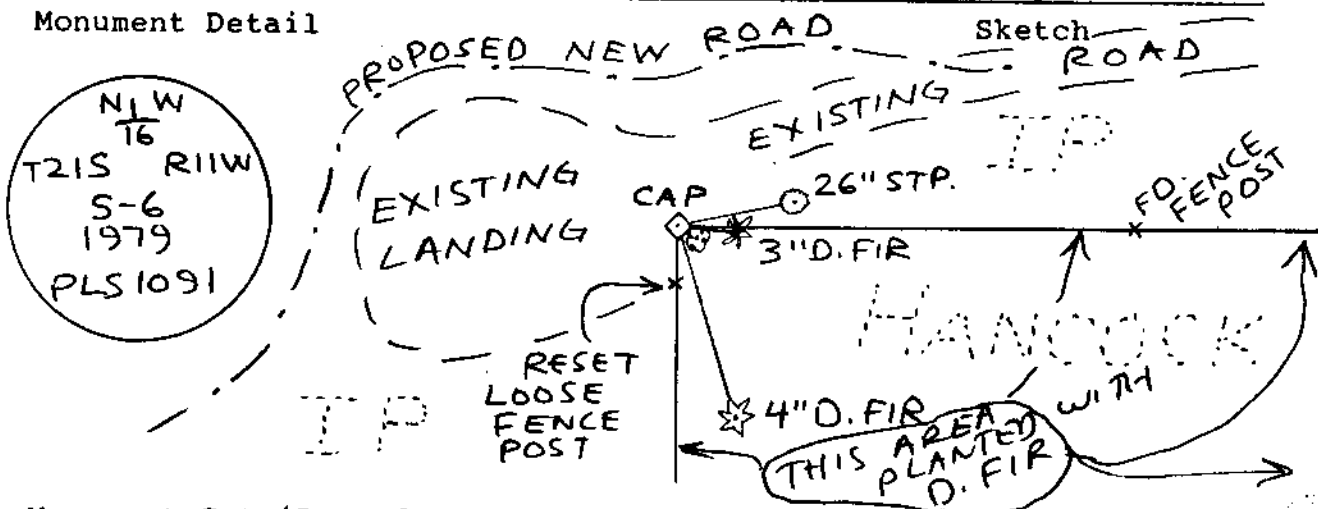 Monument Detail
Sketch
N 1/16 W
T21S R11W
S-6
1979
PLS1091
PROPOSED NEW ROAD
EXISTING ROAD
IP
EXISTING
LANDING
CAP
26" STP.
3" D. FIR
FD. FENCE
POST
HANCOCK
RESET
LOOSE
FENCE
POST
IP
4" D. FIR
THIS AREA
PLANTED WITH
D. FIR